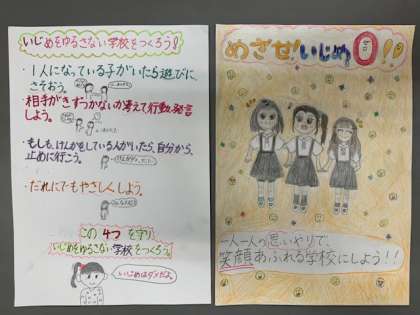 いじめをゆるさない学校をつくろう！
・1人になっている子がいたら遊びに
さそおう。
・相手がきずつかないか考えて行動、発言
しよう。
・もしも、けんかをしている人がいたら、自分から、
止めに行こう。
・だれにでもやさしくしよう。
この4つを守り
いじめをゆるさない学校をつくろう。
いじめはダメだよ。
めざせ！いじめ0！！
ゼロ
一人一人の思いやりで、
笑顔あふれる学校にしよう！！